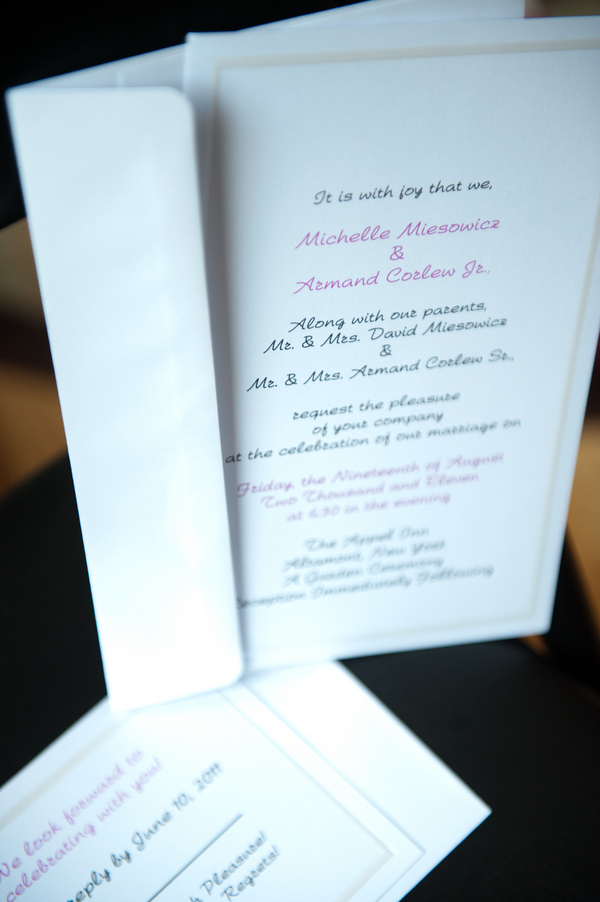 It is with joy that we,
Michelle Miesowicz
&
Armand Corlew Jr.,
Along with our parents,
Mr. & Mrs. David Miesowicz
&
Mr. & Mrs. Armand Corlew Sr.,
request the pleasure
of your company
at the celebration of our marriage on
Friday, the Nineteenth of August
Two Thousand and Eleven
at 6:30 in the evening
The Appel Inn
Altamont, New York
A Garden Ceremony
Reception Immediately Following
We look forward to
celebrating with you!
reply by June 10, 2011
Pleasure!
Regrets!